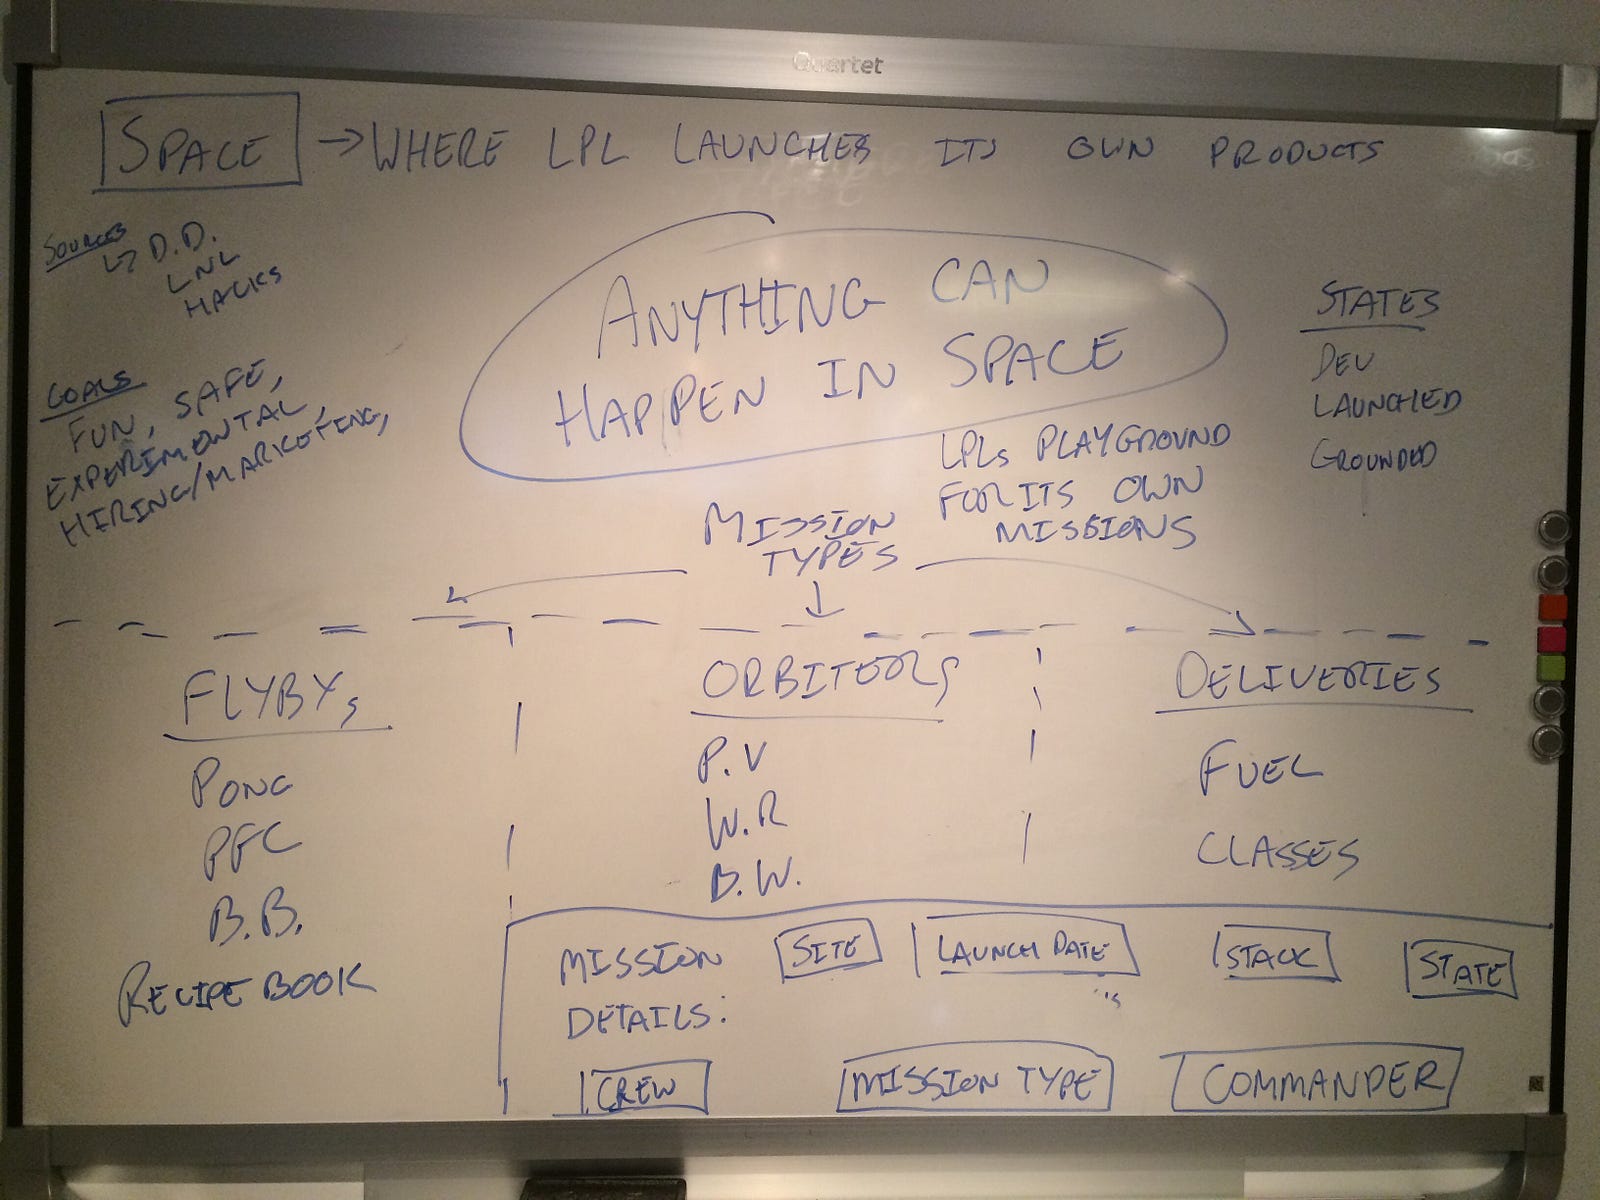 Quartet
SPACE → WHERE LPL LAUNCHES ITS OWN PRODUCTS
SOURCES
↳ D.D.
LNL
HACKS
GOALS
FUN, SAFE,
EXPERIMENTAL,
HIRING/MARKETING,
ANYTHING CAN
HAPPEN IN SPACE
LPLs PLAYGROUND
FOR ITS OWN
MISSIONS
STATES
DEV
LAUNCHED
GROUNDED
MISSION
TYPES
FLYBYs
PONG
PFC
B.B.
RECIPE BOOK
ORBITERS
P.V
W.R
B.W.
DELIVERIES
FUEL
CLASSES
MISSION
DETAILS:
SITE
LAUNCH DATE
STACK
STATE
CREW
MISSION TYPE
COMMANDER